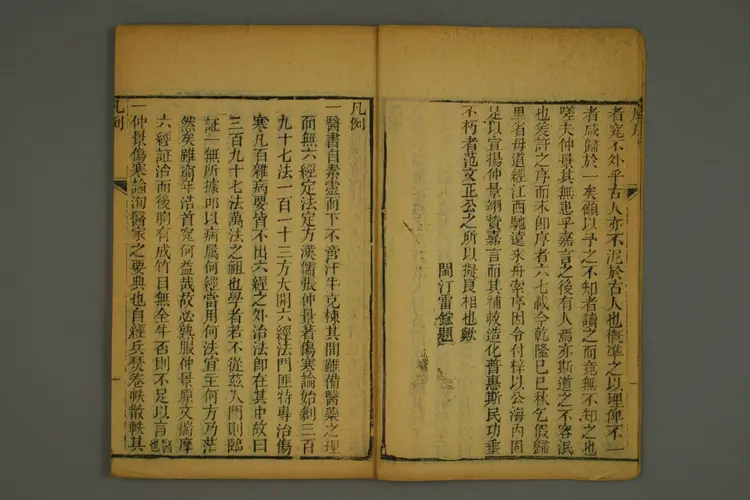 者寔不外乎古人亦不泥於古人也慨準之以理俾不一
者咸歸於一矣顧以予之不知者讀之而竟無不知之也
嗟夫仲景其無患乎嘉言之後有人焉亦斯道之不容泯
也爰許之序而未即序者六七載今乾隆己巳秋乞假歸
里省母道經江西馳遠來舟索序因令付梓以公海内固
是以宣揚仲景翊贊嘉言而其補救造化普惠斯民功垂
不朽者范文正公之所以擬良相也歟
閩汀雷鋐題
凡例
一醫書自素靈而下不啻汗牛充棟其間雖備醫藥之理
而無六經定法定方漢儒張仲景著傷寒論始剏三百
九十七法一百一十三方大開六經法門匪特專治傷
寒凡百雜病要皆不出六經之外治法即在其中故曰
三百九十七法萬法之祖也學者若不從茲入門則臨
証一無所據叩以病属何經當用何法宜主何方乃茫
然矣雖窮年浩首究何益哉故必熟服仲景原文揣摩
六經証治而後胸有成竹目無全牛否則不足以言醫也
一仲景傷寒論洵醫家之要典也自經兵燹卷帙散軼其
凡例